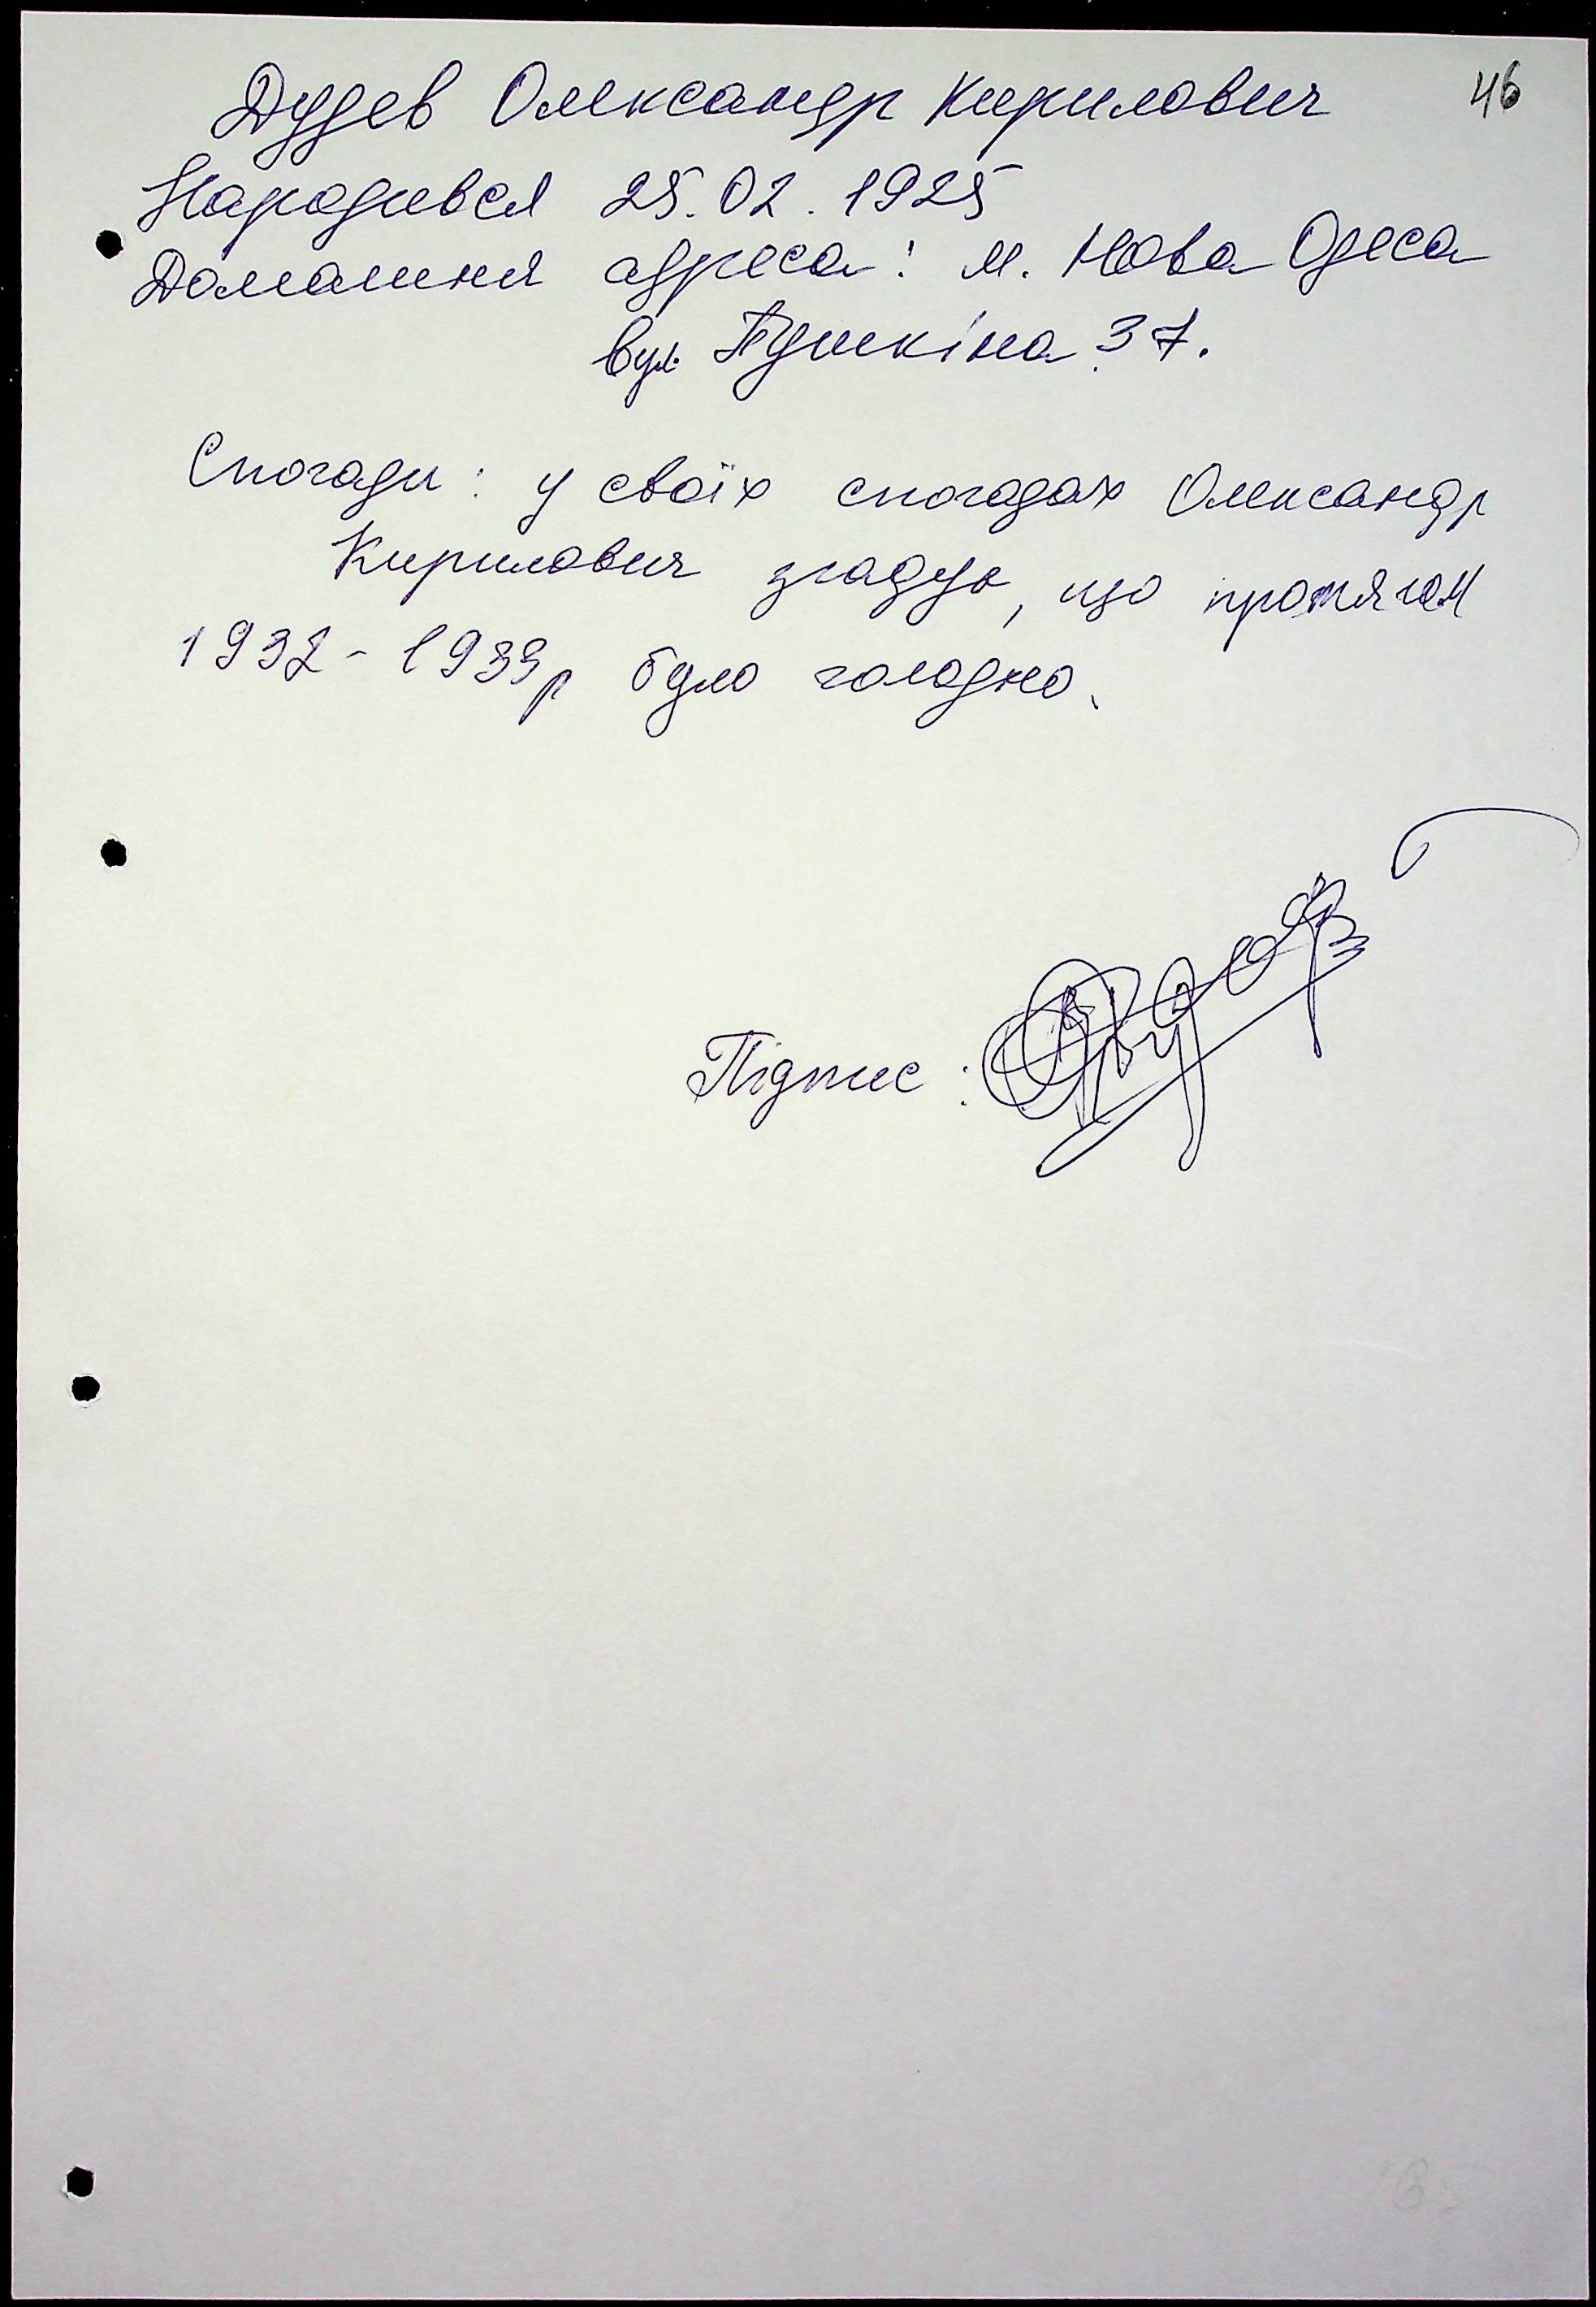 46
Дудев Олександр Кирилович
Народився 25.02.1925
Домашня адреса: м. Нова Одеса
вул. Пушкіна 37.
Спогади: у своїх спогадах Олександр
Кирилович згадує, що протягом
1932-1933р було голодно.
Підпис: